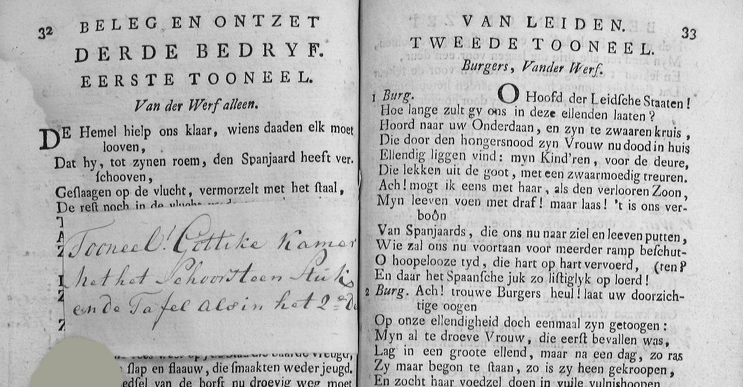 32 BELEG EN ONTZET
DERDE BEDRYF.
EERSTE TOONEEL.
Van der Werf alleen.
DE Hemel hielp ons klaar, wiens daaden elk moet
looven,
Dat hy, tot zynen roem, den Spanjaard heeft ver-
schooven,
Geslaagen op de vlucht, vermorzelt met het staal,
De rest noch in de vlucht
Tooneel! Gottike Kamer
het het Schoorsteen Stuk
en de Tafel als in het 2de
slap en flaauw, die smaakten weder jeugd.
van de borst nu droevig weg moet
VAN LEIDEN. 33
TWEEDE TOONEEL.
Burgers, Vander Werf.
1 Burg. O Hoofd der Leidsche Staaten!
Hoe lange zult gy ons in deze ellenden laaten?
Hoord naar uw Onderdaan, en zyn te zwaaren kruis,
Die door den hongersnood zyn Vrouw nu dood in huis
Ellendig liggen vind: myn Kind'ren, voor de deure,
Die lekken uit de goot, met een zwaarmoedig treuren.
Ach! mogt ik eens met haar, als den verlooren Zoon,
Myn leeven voen met draf! maar laas! 't is ons ver-
boôn
Van Spanjaards, die ons nu naar ziel en leeven putten,
Wie zal ons nu voortaan voor meerder ramp beschut-
O hoopelooze tyd, die hart op hart vervoerd, (ten?
En daar het Spaansche juk zo listiglyk op loerd!
2 Burg. Ach! trouwe Burgers heul! laat uw doorzich-
tige oogen
Op onze ellendigheid doch eenmaal zyn getoogen:
Myn al te droeve Vrouw, die eerst bevallen was,
Lag in een groote ellend, maar na een dag, zo ras
Zy maar begon te staan, zo is zy heen gekroopen,
En zocht haar voedzel doen in vuile vulnishoopen